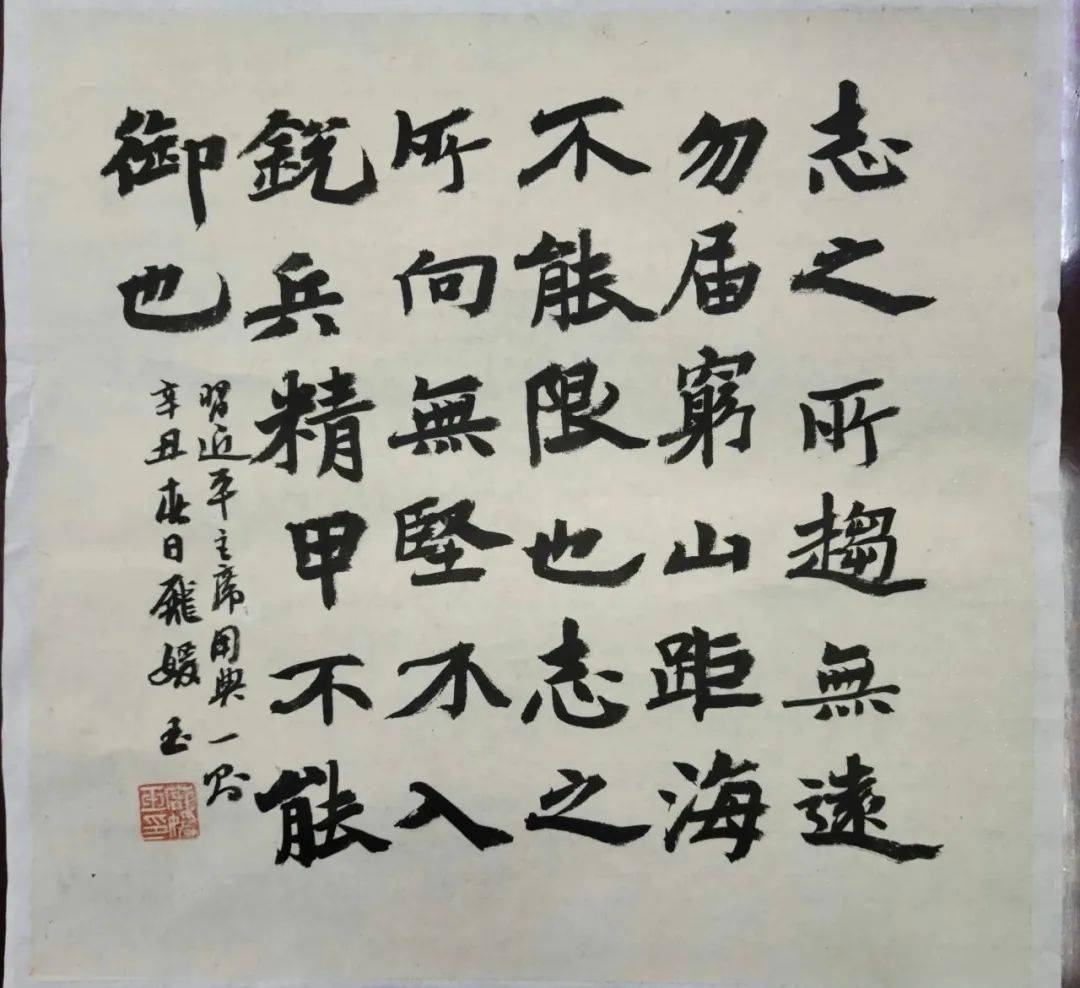 志之所趨無遠
勿届窮山距海
不能限也志之
所向無堅不入
鋭兵精甲不能
御也
習近平主席用典一則
辛丑春日龐媛玉